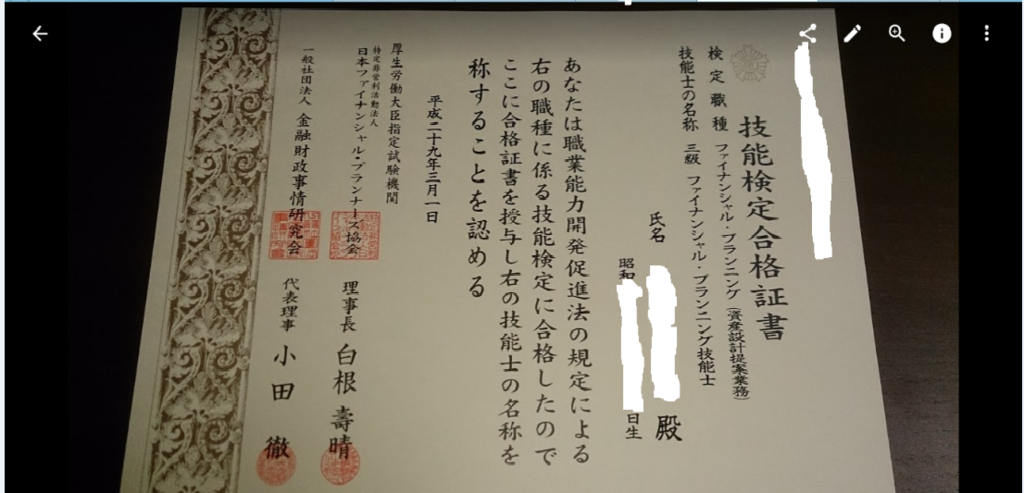 技能検定合格証書
検定職種 ファイナンシャル・プランニング(資産設計提案業務)
技能士の名称 三級 ファイナンシャル・プランニング技能士
氏名 殿
昭和 日生
あなたは職業能力開発促進法の規定による
右の職種に係る技能検定に合格したので
ここに合格証書を授与し右の技能士の名称を
称することを認める
平成二十九年三月一日
厚生労働大臣指定試験機関
特定非営利活動法人
日本ファイナンシャル・プランナーズ協会 理事長 白根壽晴
一般社団法人 金融財政事情研究会 代表理事 小田徹